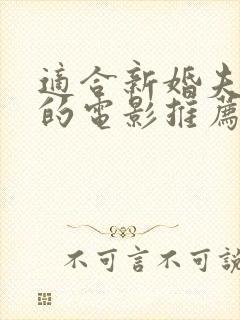 適合新婚夫
的電影推薦
不可言不可說